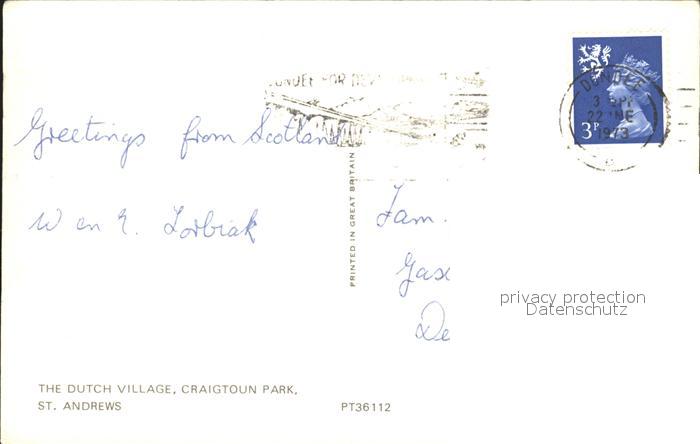 DUNDEE FOR
DUNDEE
3
22 NE
1973
3P
Greetings from Scotland
W en E. Torbiak
PRINTED IN GREAT BRITAIN
Fam.
De
privacy protection
Datenschutz
THE DUTCH VILLAGE, CRAIGTOUN PARK,
ST. ANDREWS
PT36112